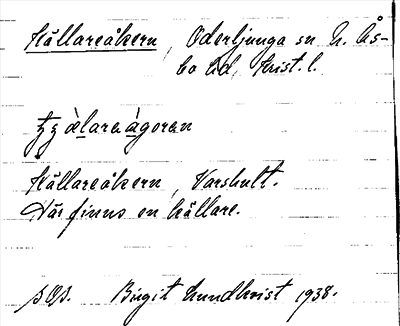 Källareåkern, Oderljunga sn N. Ås-
bo hd, Krist. l.
àlara àgoran
Källareåkern, Varshult.
Här finns en källare.
Birgit Lundkvist 1938.